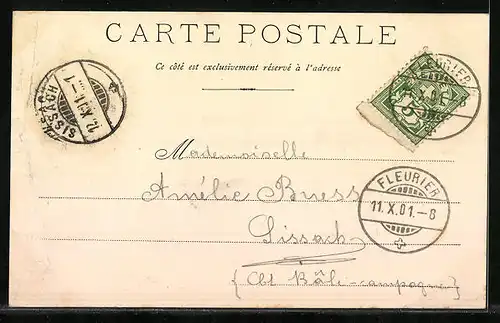 CARTE POSTALE
Ce côté est exclusivement réservé à l'adresse
FLEURIER
SISSACH
12. X. 01. - 1
5
Mademoiselle
Amélie Buess
FLEURIER
11. X. 01. - 8
Sissach
(Ct Bâle-campagne)